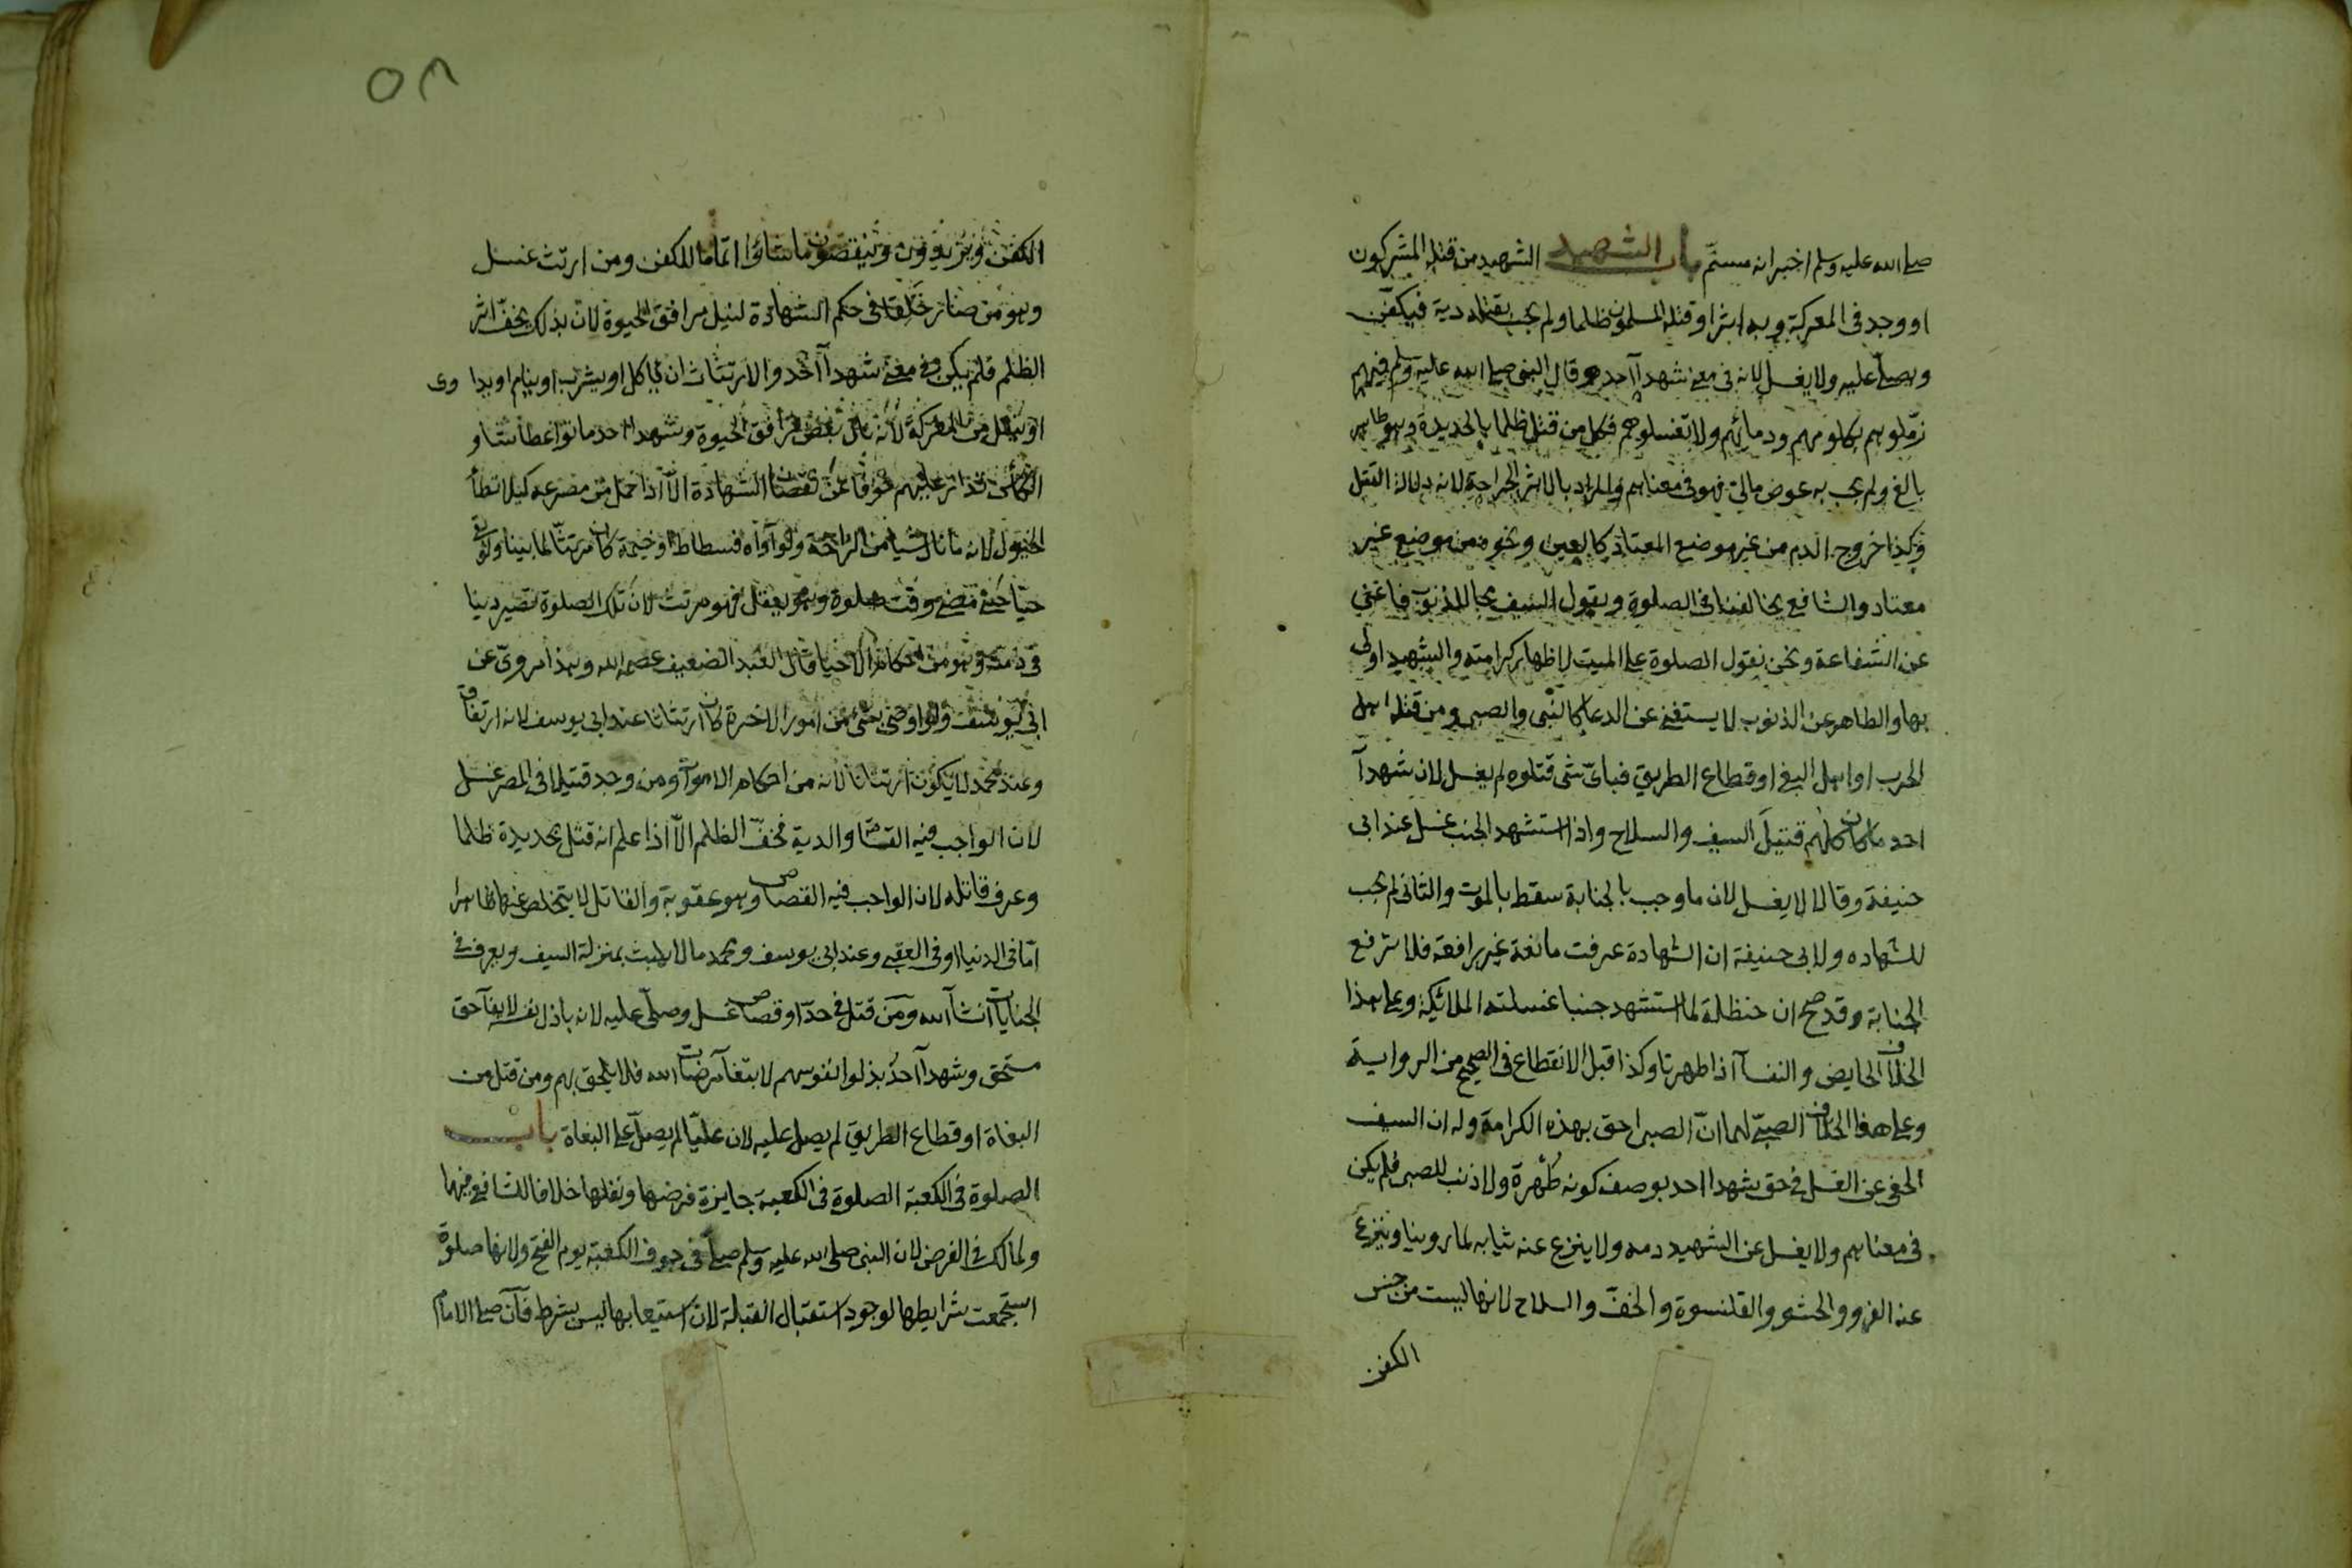 صلى الله عليه وسلم اخبر انه مسنّم باب الشهيد الشهيد من قتله المشركون
او وجد فى المعركة وبه اثر او قتله المسلمون ظلما ولم يجب بقتله دية فيكفّن
ويصلّى عليه ولا يغسل لانه فى معنى شهدآ احد وقال النبى صلى الله عليه وسلم فيهم
زمّلوهم بكلومهم ودمائهم ولا تغسلوهم فكل من قتل ظلما بالحديدة وهو طاهر
بالغ ولم يجب به عوض مالىّ فهو فى معناهم والمراد بالاثر الجراحة لانه دلالة القتل
وكذا خروج الدم من غير موضع المعتاد كالعين ونحوه من موضع غير
معتاد والشافعى يخالفنا فى الصلوة ويقول السيف محا للذنوب فاغنى
عن الشفاعة ونحن نقول الصلوة على الميت لاظهار كرامته والشهيد اولى
بها والطاهر عن الذنوب لا يستغنى عن الدعا كالنبى والصبى ومن قتله اهل
الحرب او اهل البغى او قطاع الطريق فباىّ شئ قتلوه لم يغسل لان شهدآ
احد ما كان كلهم قتيل السيف والسلاح واذا استشهد الجنب غسل عند ابى
حنيفة وقالا لا يغسل لان ما وجب بالجنابة سقط بالموت والثانى لم يجب
للشهاده ولابى حنيفة ان الشهادة عرفت مانعة غير رافعة فلا ترفع
الجنابة وقد صح ان حنظلة لما استشهد جنبا غسلته الملائكة وعلى هذا
الخلاف الحايض والنفسآ اذا طهرتا وكذا قبل الانقطاع فى الصحيح من الرواية
وعلى هذا الخلاف الصبىّ لهما انّ الصبى احق بهذه الكرامة وله ان السيف
اكفى عن الغسل فى حق شهدا احد بوصف كونه طُهْرة ولا ذنب للصبى فلم يكن
فى معناهم ولا يغسل عن الشهيد دمه ولا ينزع عنه ثيابه لما روينا وينزع
عنه الفرو والحشو والقلنسوة والخفّ والسلاح لانها ليست من جنس
الكفن
٥٣
الكفن ويزيدون وينقصون ما شاؤا اتماما للكفن ومن ارتث غسل
وهو من صار خلقا فى حكم الشهادة لنيل مرافق الحيوة لان بذلك يخفّ اثر
الظلم فلم يكن فى معنى شهدآ احد والارتثاث ان ياكل او يشرب او ينام او يداوى
او ينقل من المعركة لانه نال بعض مرافق الحيوة وشهدا احد ماتوا عطاشا و
الكأس تدار عليهم خوفا عن نقصان الشهادة الاّ اذا حمل من مصرعه كيلا تطأ
الخيول لانه ما نال شيا من الراحة ولو آواه فسطاط او خيمة كان مرتثّا لما بينا ولو بقى
حيّا حتى مضى وقت صلوة وهو يعقل فهو مرتث لان تلك الصلوة تصير دينا
فى ذمته وهو من احكام الاحيا قال العبد الضعيف عصمه الله وهذا مروىّ عن
ابى يوسف ولو اوصى بشئ من امور الاخرة كان ارتثاثا عند ابى يوسف لانه ارتفاق
وعند محمد لا يكون ارتثاثا لانه من احكام الاموات ومن وجد قتيلا فى المصر غسل
لان الواجب فيه القسامة والدية فخفّ الظلم الاّ اذا علم انه قتل بحديدة ظلما
وعرف قاتله لان الواجب فيه القصاص وهو عقوبة والقاتل لا يتخلص عنها ظاهرا
امّا فى الدنيا او فى العقبى وعند ابى يوسف ومحمد ما لا يلبث بمنزلة السيف ويعرف فى
الجنايات انشآ الله ومن قتل فى حدّ او قصاص غسل وصلّى عليه لانه باذل نفسه لايفآ حق
مستحق وشهدآ احد بذلوا نفوسهم لابتغآ مرضات الله فلا يلحق بهم ومن قتل من
البغاة او قطاع الطريق لم يصل عليه لان عليّا لم يصلّ على البغاة باب
الصلوة فى الكعبة الصلوة فى الكعبة جايزة فرضها ونفلها خلافا للشافعى فيهما
ولمالك فى الفرض لان النبى صلى الله عليه وسلم صلّى فى جوف الكعبة يوم الفتح ولانها صلوة
استجمعت شرايطها لوجود استقبال القبلة لان استيعابها ليس بشرط فآن صلى الامام